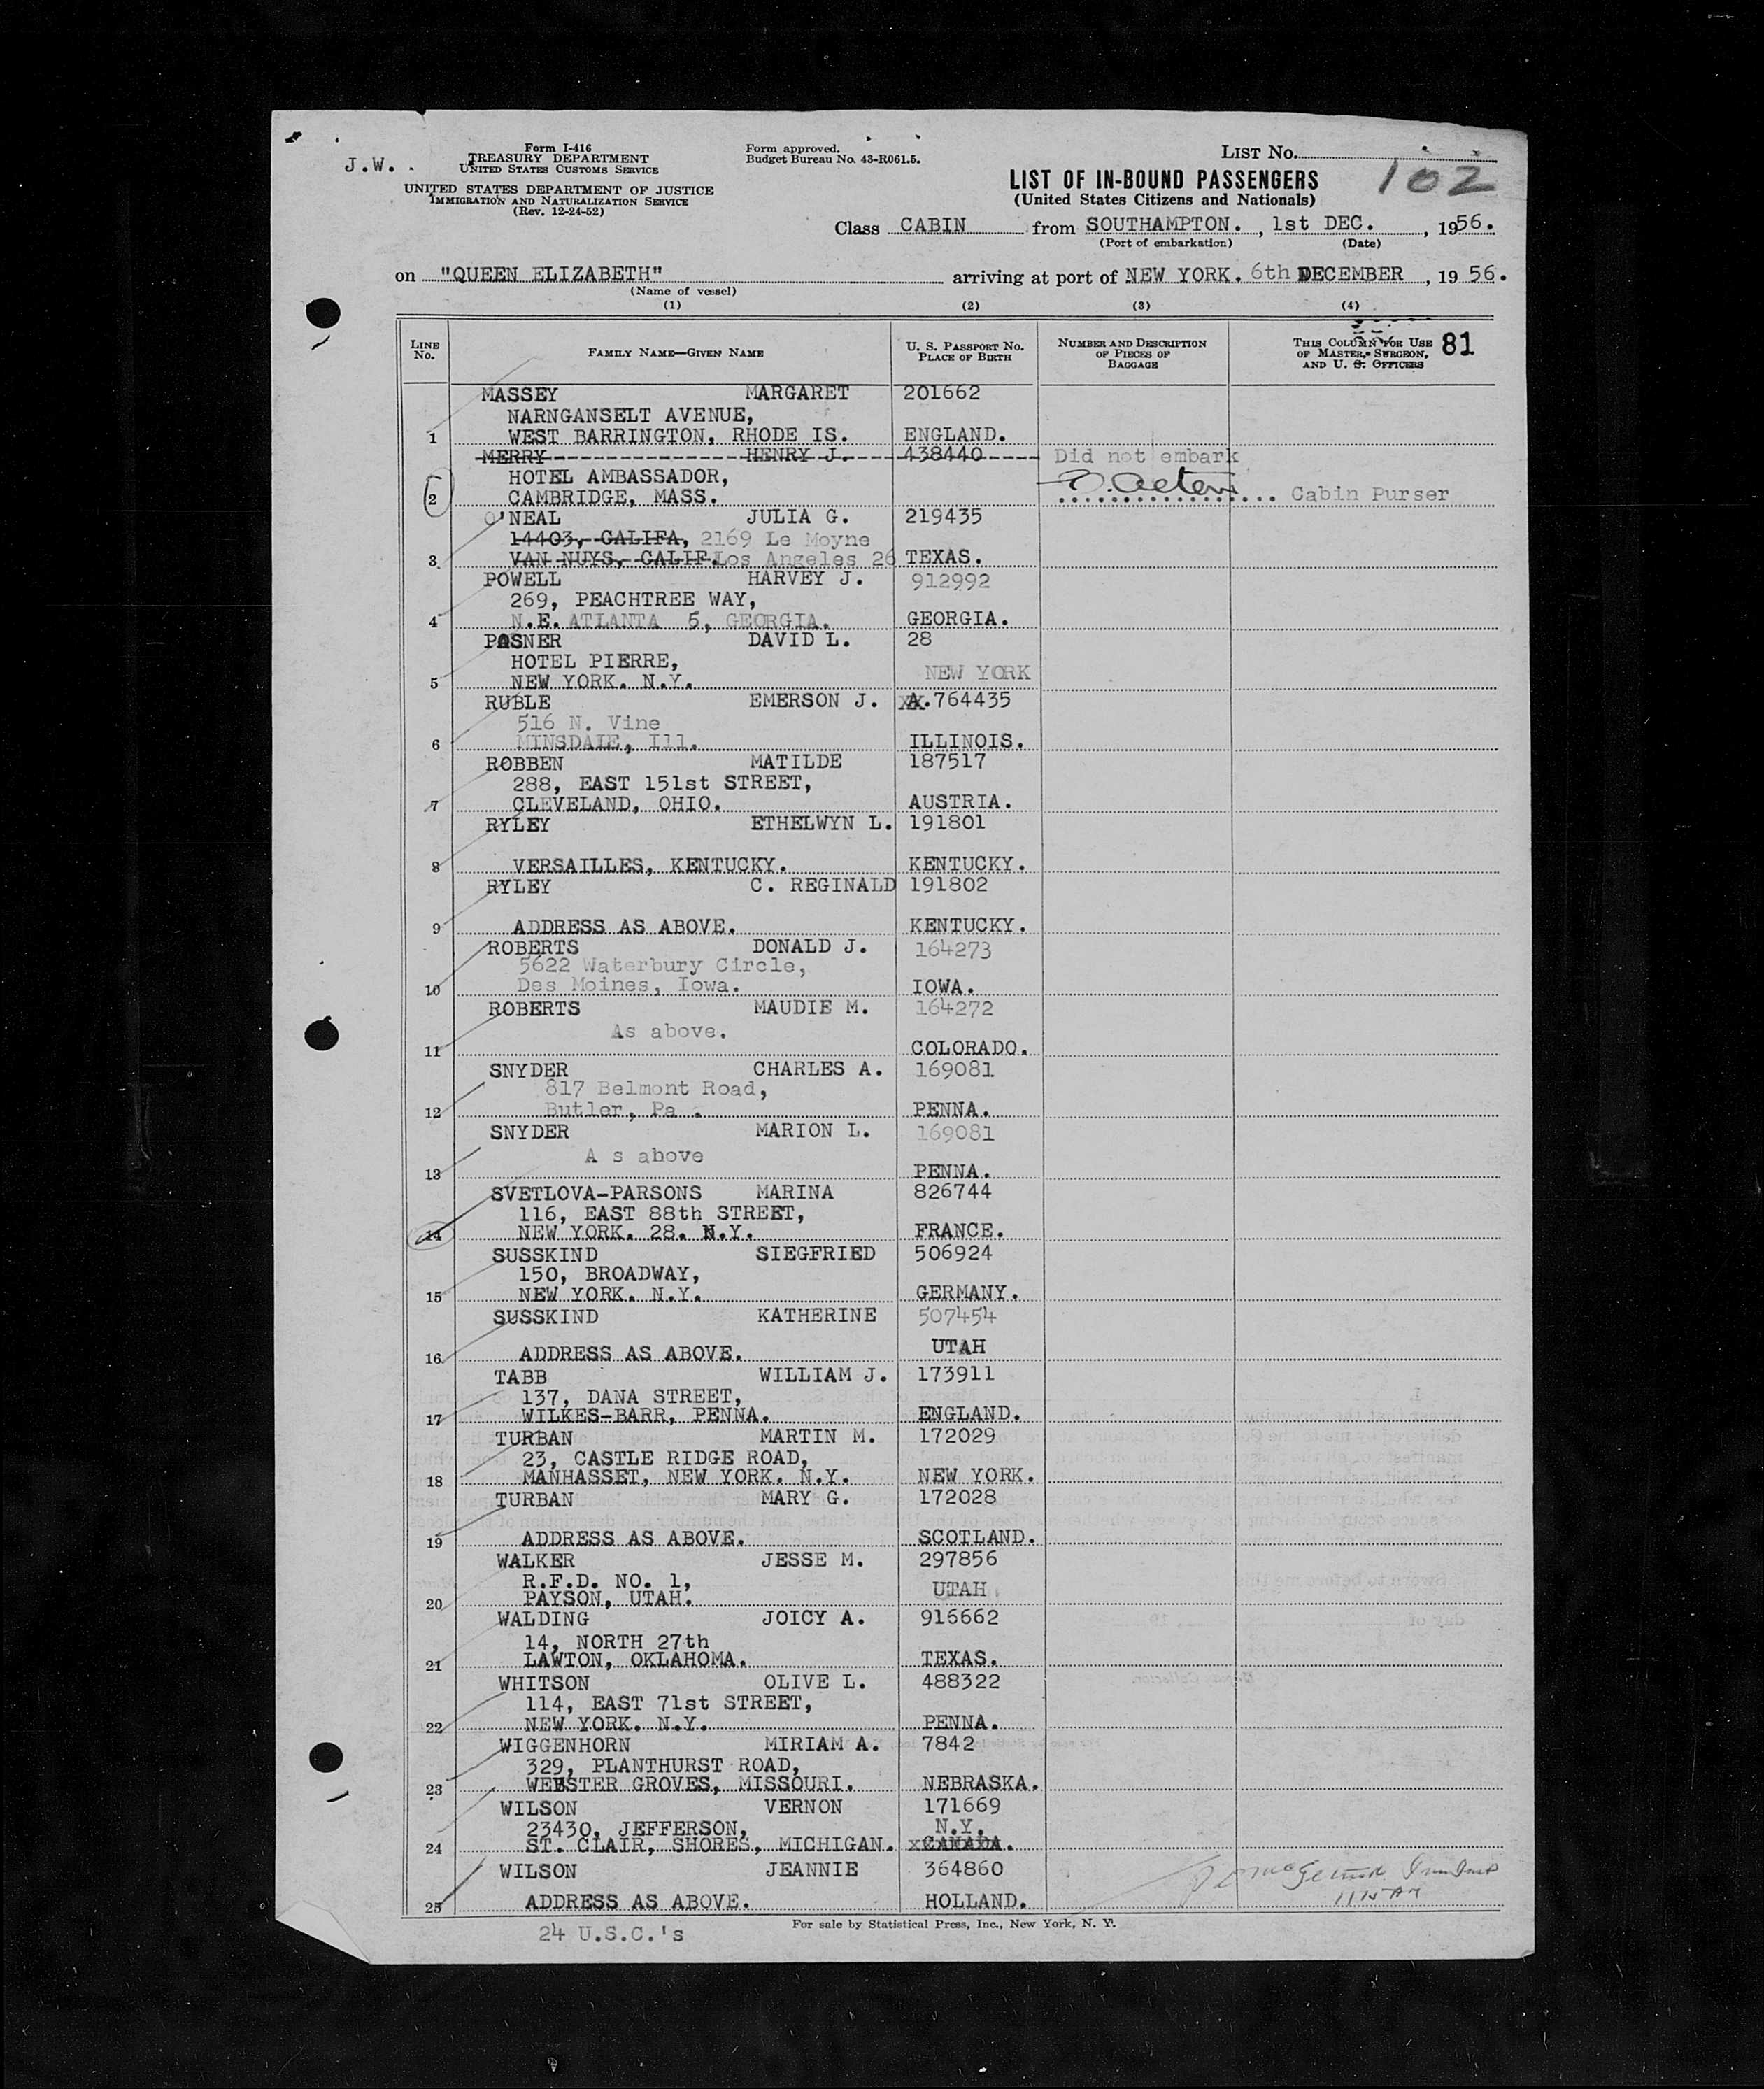 J.W.
Form I-416
TREASURY DEPARTMENT
UNITED STATES CUSTOMS SERVICE
UNITED STATES DEPARTMENT OF JUSTICE
IMMIGRATION AND NATURALIZATION SERVICE
(Rev. 12-24-52)
Form approved.
Budget Bureau No. 43-R061.5.
LIST NO.
102
LIST OF IN-BOUND PASSENGERS
(United States Citizens and Nationals)
Class CABIN from SOUTHAMPTON. , 1st DEC. , 1956.
(Port of embarkation) (Date)
on "QUEEN ELIZABETH" arriving at port of NEW YORK. 6th DECEMBER , 1956.
(Name of vessel)
(1) (2) (3) (4)
LINE No. FAMILY NAME—GIVEN NAME U. S. PASSPORT NO. PLACE OF BIRTH NUMBER AND DESCRIPTION OF PIECES OF BAGGAGE THIS COLUMN FOR USE OF MASTER, SURGEON, AND U. S. OFFICERS 81
MASSEY MARGARET 201662
NARNGANSELT AVENUE,
1 WEST BARRINGTON, RHODE IS. ENGLAND.
MERRY HENRY J. 438440 Did not embark
HOTEL AMBASSADOR,
2 CAMBRIDGE, MASS. Cabin Purser
O'NEAL JULIA G. 219435
14403, CALIFA, 2169 Le Moyne
3 VAN NUYS, CALIF. Los Angeles 26 TEXAS.
POWELL HARVEY J. 912992
269, PEACHTREE WAY,
4 N.E. ATLANTA 5, GEORGIA. GEORGIA.
POSNER DAVID L. 28
HOTEL PIERRE, NEW YORK
5 NEW YORK. N.Y.
RUBLE EMERSON J. A.764435
516 N. Vine
6 MINSDALE, Ill. ILLINOIS.
ROBBEN MATILDE 187517
288, EAST 151st STREET,
7 CLEVELAND, OHIO. AUSTRIA.
RYLEY ETHELWYN L. 191801
8 VERSAILLES, KENTUCKY. KENTUCKY.
RYLEY C. REGINALD 191802
9 ADDRESS AS ABOVE. KENTUCKY.
ROBERTS DONALD J. 164273
5622 Waterbury Circle,
10 Des Moines, Iowa. IOWA.
ROBERTS MAUDIE M. 164272
As above.
11 COLORADO.
SNYDER CHARLES A. 169081
817 Belmont Road,
12 Butler, Pa . PENNA.
SNYDER MARION L. 169081
A s above
13 PENNA.
SVETLOVA-PARSONS MARINA 826744
116, EAST 88th STREET,
14 NEW YORK. 28. N.Y. FRANCE.
SUSSKIND SIEGFRIED 506924
150, BROADWAY,
15 NEW YORK. N.Y. GERMANY.
SUSSKIND KATHERINE 507454
UTAH
16 ADDRESS AS ABOVE.
TABB WILLIAM J. 173911
137, DANA STREET,
17 WILKES-BARR, PENNA. ENGLAND.
TURBAN MARTIN M. 172029
23, CASTLE RIDGE ROAD,
18 MANHASSET, NEW YORK. N.Y. NEW YORK.
TURBAN MARY G. 172028
19 ADDRESS AS ABOVE. SCOTLAND.
WALKER JESSE M. 297856
R.F.D. NO. 1, UTAH
20 PAYSON, UTAH.
WALDING JOICY A. 916662
14, NORTH 27th
21 LAWTON, OKLAHOMA. TEXAS.
WHITSON OLIVE L. 488322
114, EAST 71st STREET,
22 NEW YORK. N.Y. PENNA.
WIGGENHORN MIRIAM A. 7842
329, PLANTHURST ROAD,
23 WEBSTER GROVES, MISSOURI. NEBRASKA.
WILSON VERNON 171669
23430, JEFFERSON, N.Y.
24 ST. CLAIR, SHORES, MICHIGAN. CANADA.
WILSON JEANNIE 364860
25 ADDRESS AS ABOVE. HOLLAND.
11 15 AM
24 U.S.C.'s
For sale by Statistical Press, Inc., New York, N. Y.